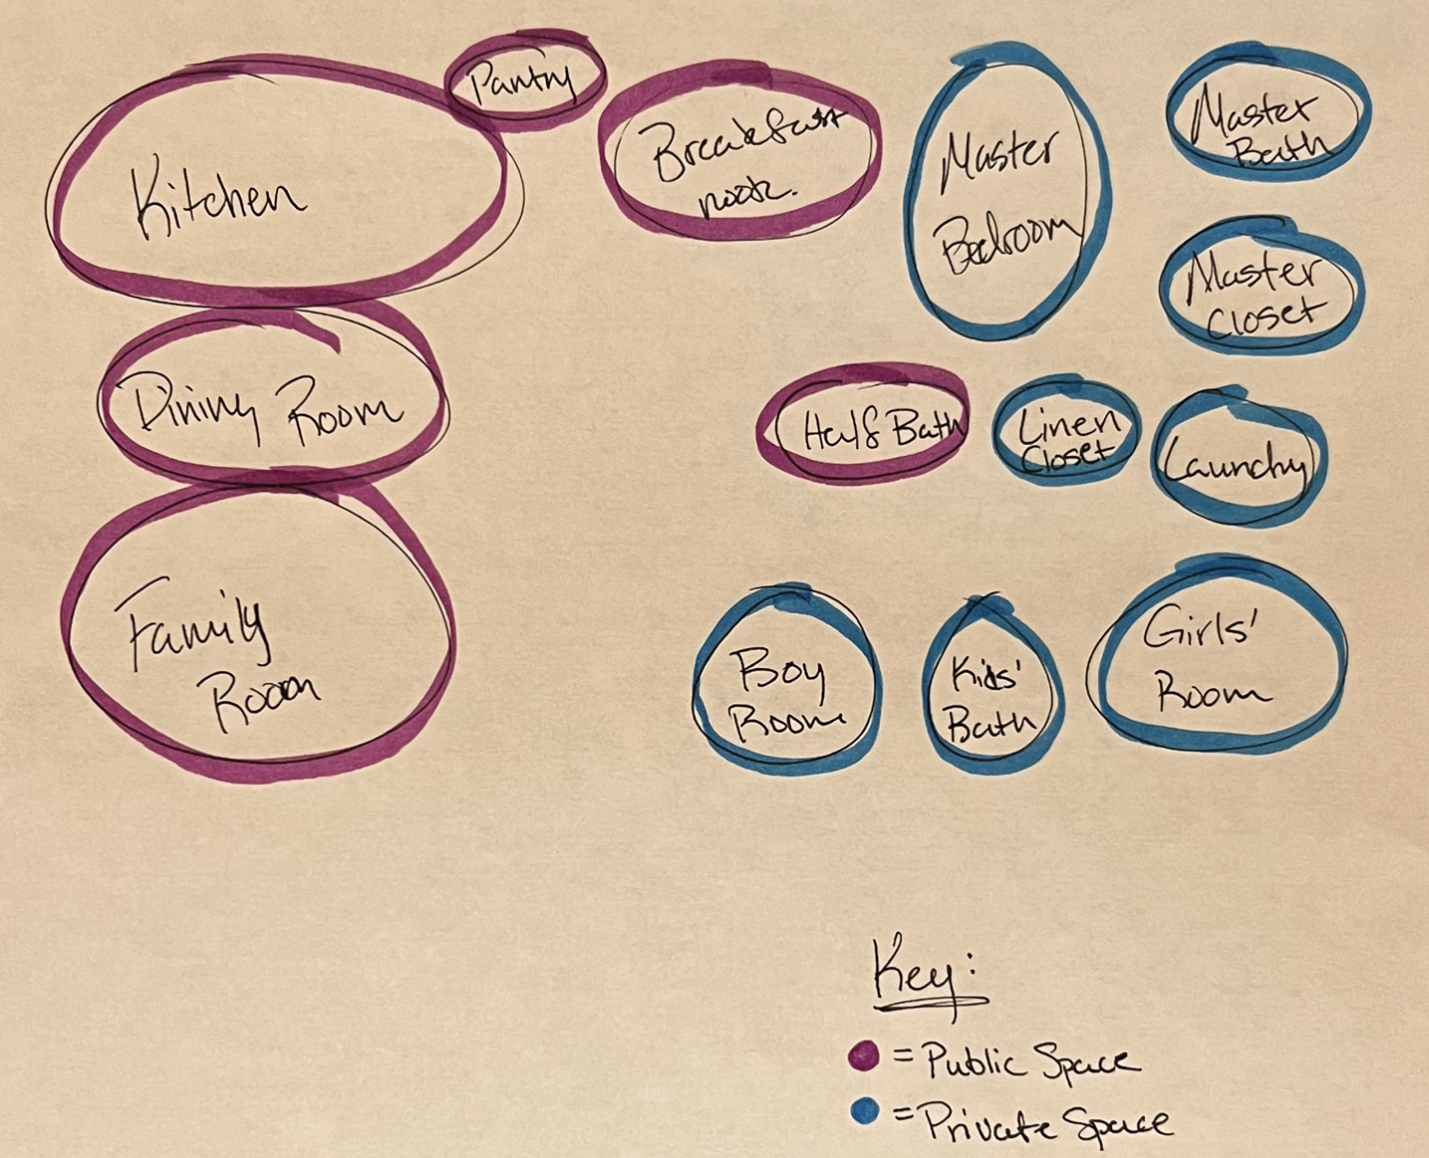 Pantry
Kitchen
Breakfast
nook.
Master
Bedroom
Master
Bath
Master
Closet
Dining Room
Half Bath
Linen
Closet
Laundry
Family
Room
Boy
Room
Kids'
Bath
Girls'
Room
Key:
= Public Space
= Private Space